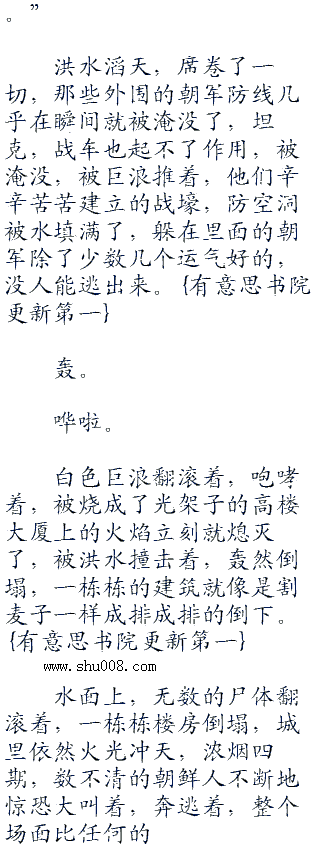 。”
洪水滔天，席卷了一
切，那些外围的朝军防线几
乎在瞬间就被淹没了，坦
克，战车也起不了作用，被
淹没，被巨浪推着，他们辛
辛苦苦建立的战壕，防空洞
被水填满了，躲在里面的朝
军除了少数几个运气好的，
没人能逃出来。{有意思书院
更新第一}
轰。
哗啦。
白色巨浪翻滚着，咆哮
着，被烧成了光架子的高楼
大厦上的火焰立刻就熄灭
了，被洪水撞击着，轰然倒
塌，一栋栋的建筑就像是割
麦子一样成排成排的倒下。
{有意思书院更新第一}
www.shu008.com
水面上，无数的尸体翻
滚着，一栋栋楼房倒塌，城
里依然火光冲天，浓烟四
期，数不清的朝鲜人不断地
惊恐大叫着，奔逃着，整个
场面比任何的